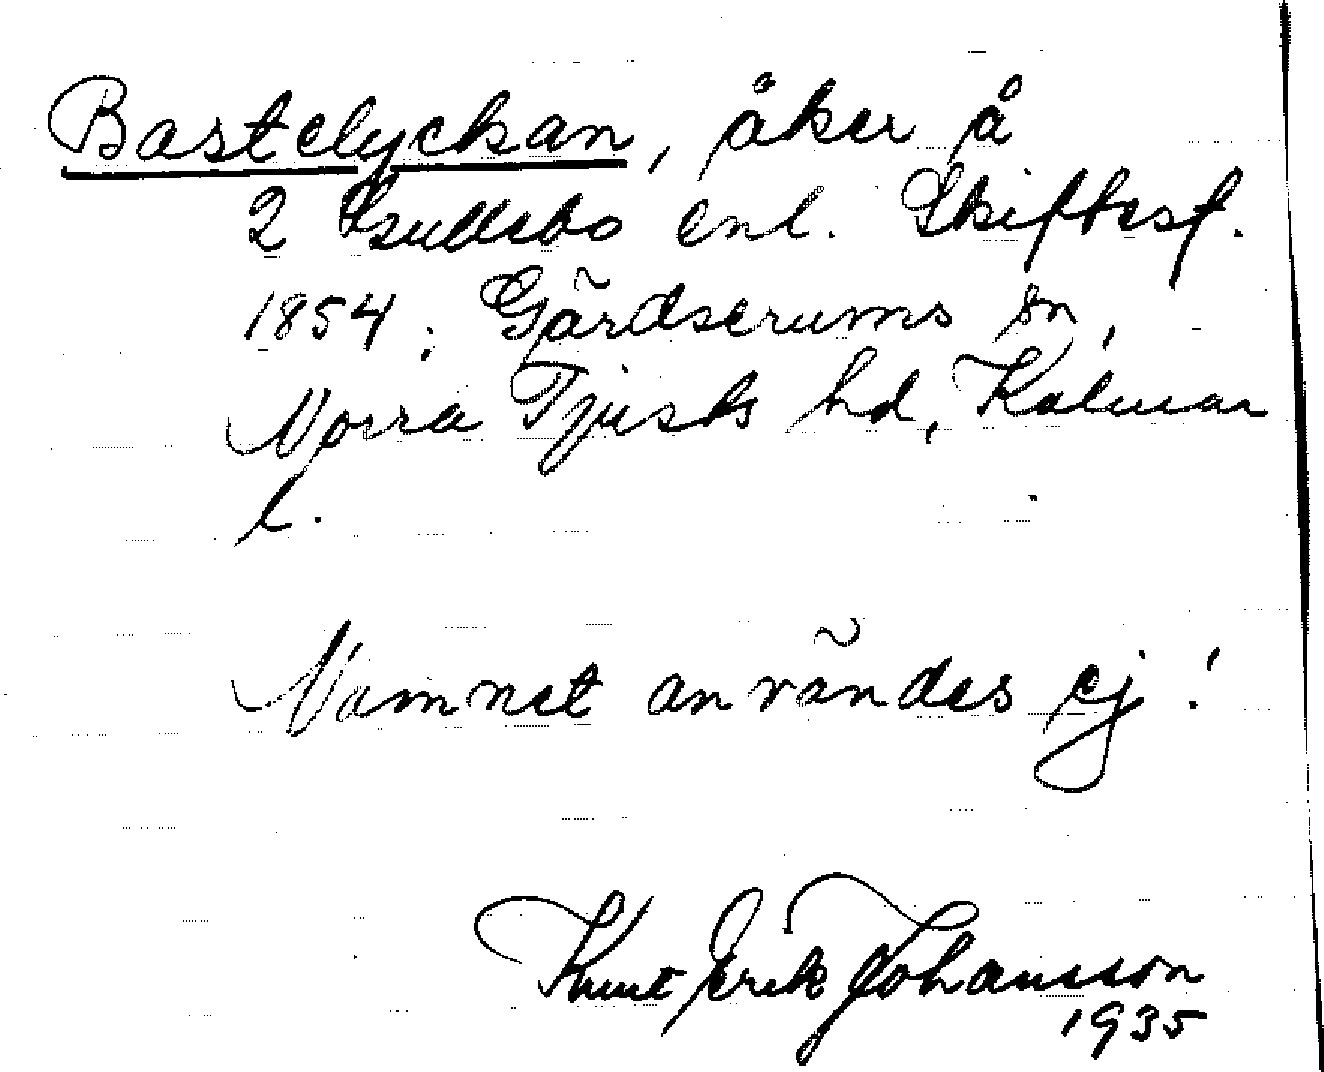 Bastelyckan, åker å
2 enl. Skiftesf.
1854; Gärdserums sn,
Norra Tjusts hd, Kalmar
l.
Namnet användes ej!
Knut Erik Johansson
1935